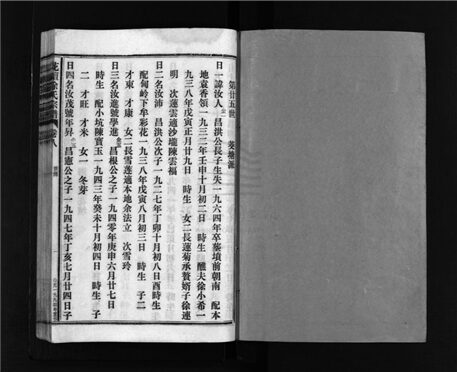 第廿五世　葵塘派
日一諱汝人　昌洪公長子生失一九六四年卒葬墳前朝南　配本
地袁香領一九三二年壬申十月初二日　時生　醮夫徐小希一
九三八年戊寅正月廿九日　時生　女二長蓮菊承贅婿子徐連
明　次蓮雲適沙壠陳雲福
日二名汝沛　昌洪公次子一九二七年丁卯十月初八日酉時生
配甸岭下牟彩花一九三八年戊寅八月初三日　時生　子二
才東　才康　女二長雪莲適本地余法立　次雪玲
日三名汝進號學進　昌根公之子一九四〇年庚申六月廿七日
時生　配小坑陳寶玉一九四三年癸未十月初四日　時生　子
二　才旺　才米　女一　冬芽
日四名汝茂號年昇　昌憲公之子一九四七年丁亥七月廿四日子